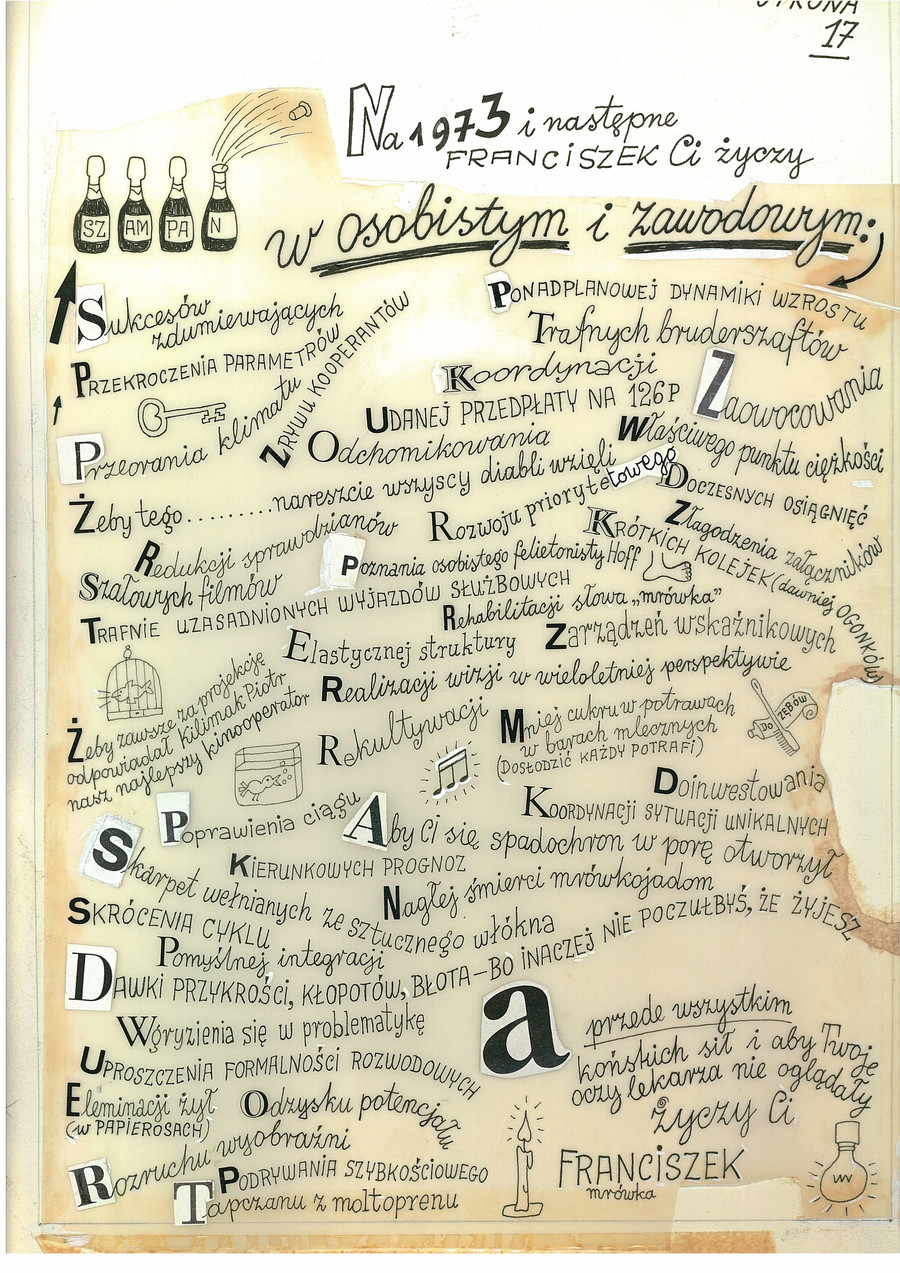 STRONA
17
Na 1973 i następne
FRANCISZEK Ci życzy
SZ AM PA N
w osobistym i zawodowym:
Sukcesów
zdumiewających
PONADPLANOWEJ DYNAMIKI WZROSTU
Trafnych bruderszaftów
PRZEKROCZENIA PARAMETRÓW
Koordynacji
Zaowocowania
Przeorania klimatu
ZRYWU KOOPERANTÓW
UDANEJ PRZEDPŁATY NA 126P
Odchomikowania
Właściwego punktu ciężkości
Żeby tego..........nareszcie wszyscy diabli wzięli
DOCZESNYCH OSIĄGNIĘĆ
Rozwoju priorytetowego
Redukcji sprawdzianów
Złagodzenia załączników
KRÓTKICH KOLEJEK (dawniej OGONKÓW)
Szałowych filmów
Poznania osobistego felietonisty Hoff
TRAFNIE UZASADNIONYCH WYJAZDÓW SŁUŻBOWYCH
Rehabilitacji słowa „mrówka”
Elastycznej struktury
Zarządzeń wskaźnikowych
Realizacji wizji w wieloletniej perspektywie
Żeby zawsze za projekcję
odpowiadał Kilimak Piotr
nasz najlepszy kinooperator
Rekultywacji
Mniej cukru w potrawach
w barach mlecznych
(DOSŁODZIĆ KAŻDY POTRAFI)
do ZĘBÓW
Doinwestowania
Poprawienia ciągu
KOORDYNACJI SYTUACJI UNIKALNYCH
Aby Ci się spadochron w porę otworzył
Skarpet wełnianych ze sztucznego włókna
KIERUNKOWYCH PROGNOZ
Nagłej śmierci mrówkojadom
SKRÓCENIA CYKLU
Pomyślnej integracji
DAWKI PRZYKROŚCI, KŁOPOTÓW, BŁOTA-BO INACZEJ NIE POCZUŁBYŚ, ŻE ŻYJESZ
Wgryzienia się w problematykę
UPROSZCZENIA FORMALNOŚCI ROZWODOWYCH
Eleminacji żył
(w PAPIEROSACH)
Odzysku potencjału
Rozruchu wyobraźni
PODRYWANIA SZYBKOŚCIOWEGO
Tapczanu z moltoprenu
a przede wszystkim
końskich sił i aby Twoje
oczy lekarza nie oglądały
życzy Ci
FRANCISZEK
mrówka